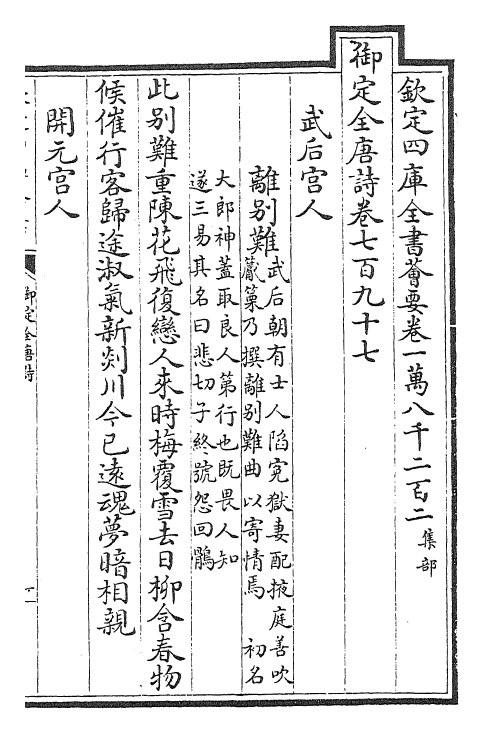 欽定四庫全書薈要卷一萬八千二百二 集部
御定全唐詩卷七百九十七
武后宫人
離別難 武后朝有士人陷寃獄妻配掖庭善吹
觱篥乃撰離別難曲以寄情焉 初名
大郎神蓋取良人第行也既畏人知
遂三易其名曰悲切子終號怨回鶻
此别難重陳花飛復戀人來時梅覆雪去日柳含春物
候催行客歸途淑氣新剡川今已遠魂夢暗相親
開元宫人
御定全唐詩